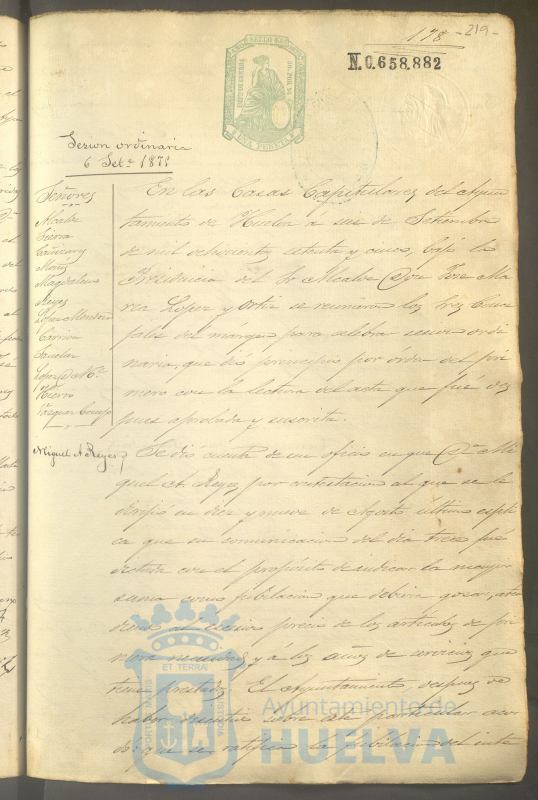 178 - 219 -
N. 0.658,882
Sesion ordinaria
6 Set.e 1875
Señores
Alcalde
Sierra
Magdalena
Reyes
Lopez Montero
Carrion
Lopez
Hierro
Vazquez
En las Casas Capitulares del Ayun
tamiento de Huelva á seis de Setiembre
de mil ochocientos setenta y cinco, bajo la
Presidencia del Sr Alcalde Don José Ma
ria Lopez y Ortiz se reunieron los Sres Conce
jales del márgen para celebrar sesion ordi
naria, que dió principio por órden del pri
mero con la lectura del acta que fué des
pues aprobada y suscrita.
Miguel A. Reyes
Se dió cuenta de un oficio en que Dn Mi
guel A. Reyes, por contestacion al que se le
dirijió en diez y nueve de Agosto último, espli
ca que su comunicacion del dia trece fué
con el propósito de indicar la mayor
suma como jubilacion que debiera gozar, aten
diendo al escesivo precio de los artículos de pri
mera necesidad y á los años de servicios que
tiene prestados. El Ayuntamiento, despues de
haber discutido sobre este particular acor
dó: que se ratifica la jubilacion del inte
Ayuntamiento de
HUELVA